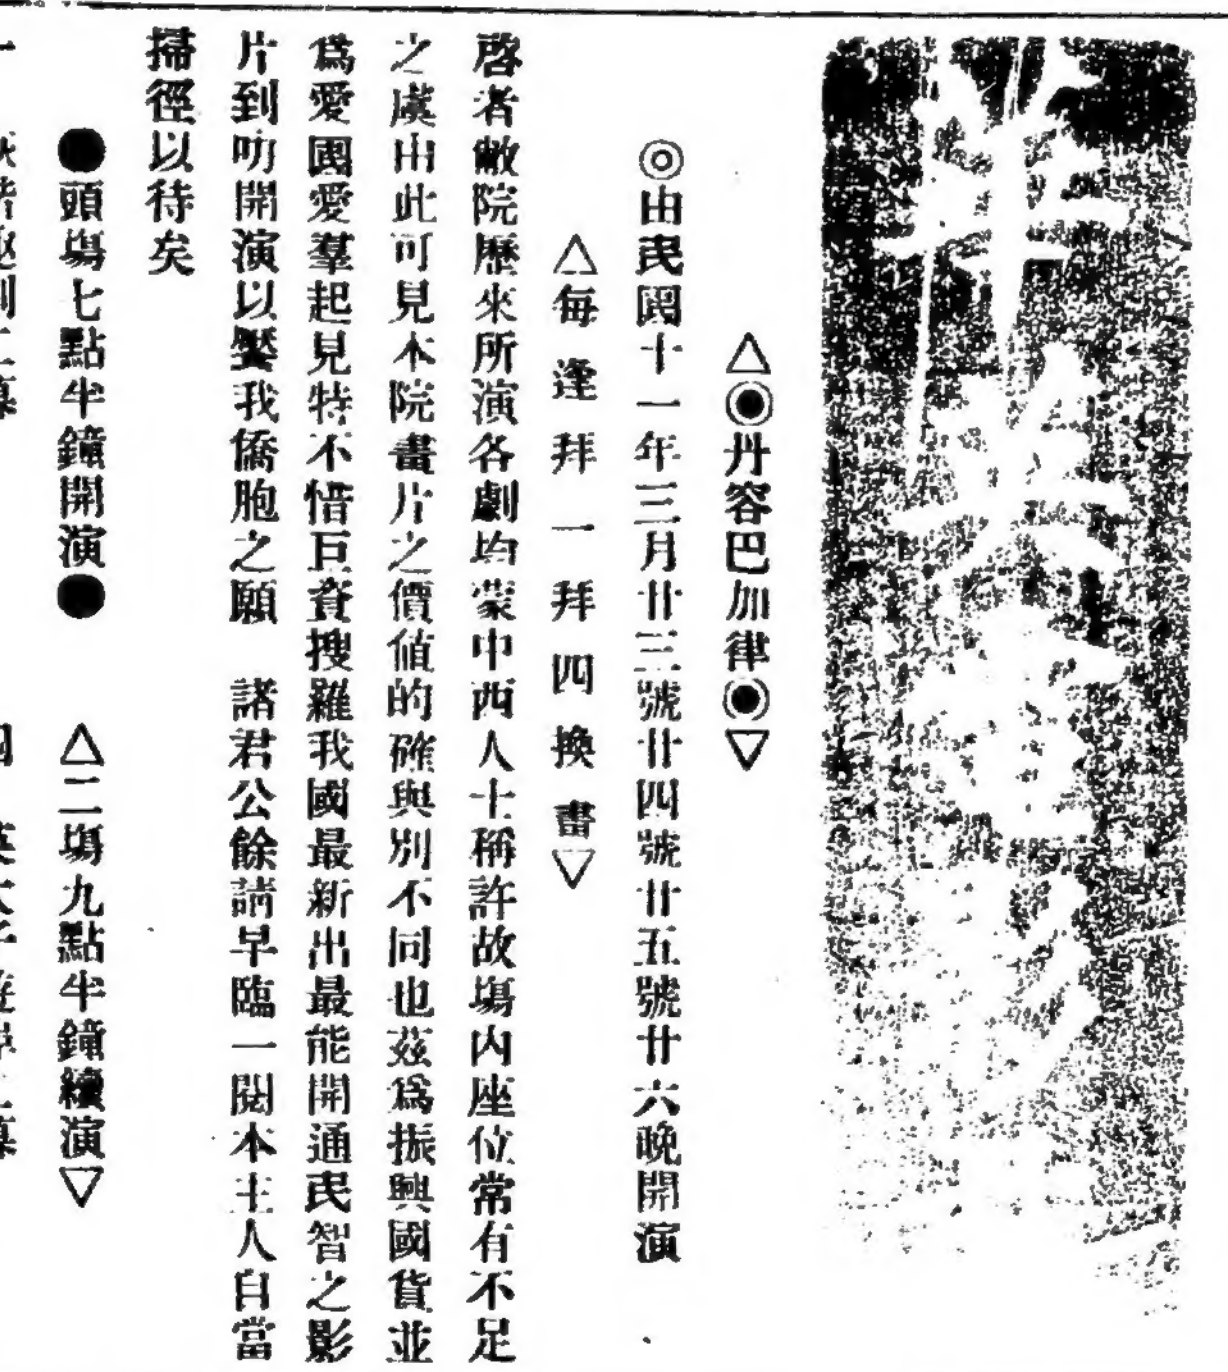 △◉丹容巴加律◉▽
◎由民國十一年三月廿三號廿四號廿五號廿六晚開演
△每逢拜一拜四換畫▽
啓者敝院歷來所演各劇均蒙中西人士稱許故塲内座位常有不足
之虞由此可見本院畫片之價值的確與別不同也茲爲振興國貨並
爲愛國愛羣起見特不惜巨資搜羅我國最新出最能開通民智之影
片到叻開演以饜我僑胞之願　諸君公餘請早臨一閱本主人自當
掃徑以待矣
●頭塲七點半鐘開演●　△二塲九點半鐘續演▽